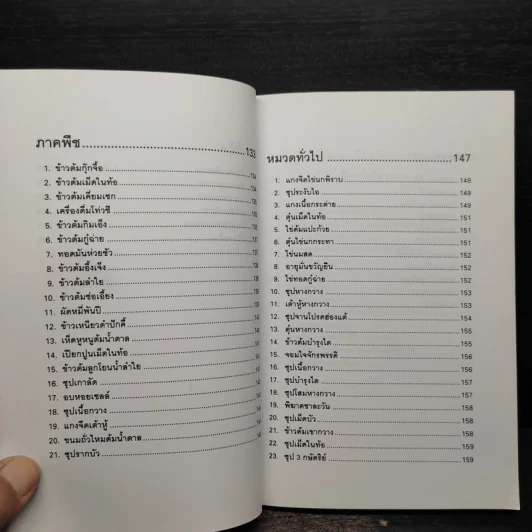 ภาคพืช 133
1. ข้าวต้มกุ๊กจื้อ 134
2. ข้าวต้มเม็ดในท้อ 134
3. ข้าวต้มเคี่ยมเซก 135
4. เครื่องดื่มโท่วซี 135
5. ข้าวต้มกิมเอ็ง 136
6. ข้าวต้มกู๋ฉ่าย 137
7. ทอดมันห่วยซัว 137
8. ข้าวต้มอึ้งเจ็ง
9. ข้าวต้มลำไย
10. ข้าวต้มช่อเอี้ยง
11. ผัดหมี่พันปี
12. ข้าวเหนียวดำปักคี้
13. เห็ดหูหนูต้มน้ำตาล
14. เปียกปูนเม็ดในท้อ
15. ข้าวต้มลูกโยนน้ำลำไย
16. ซุปเกาลัด
17. อบหอยเชลล์
18. ซุปเนื้อกวาง
19. แกงจืดเต้าหู้
20. ขนมถั่วไหมต้มน้ำตาล
21. ซุปรากบัว
หมวดทั่วไป 147
1. แกงจืดไข่นกพิราบ 148
2. ซุประงับไอ 149
3. แกงเนื้อกระต่าย 149
4. ตุ๋นเม็ดในท้อ 151
5. ไข่ต้มแปะก้วย 151
6. ตุ๋นไข่นกกระทา 151
7. ไข่นมสด 152
8. อายุมั่นขวัญยืน 152
9. ไข่ทอดกู๋ฉ่าย 152
10. ซุปหางกวาง 153
11. เต้าหู้หางกวาง 153
12. ซุปจานโปรดฮ่องเต้ 153
13. ตุ๋นหางกวาง 155
14. ข้าวต้มบำรุงไต 155
15. จอมใจจักรพรรดิ 156
16. ซุปเนื้อกวาง 157
17. ซุปบำรุงไต 157
18. ซุปโสมหางกวาง 157
19. พิฆาตซาละวัน 158
20. ซุปเม็ดบัว 158
21. ข้าวต้มเขากวาง 158
22. ซุปเม็ดในท้อ 159
23. ซุป 3 กษัตริย์ 159